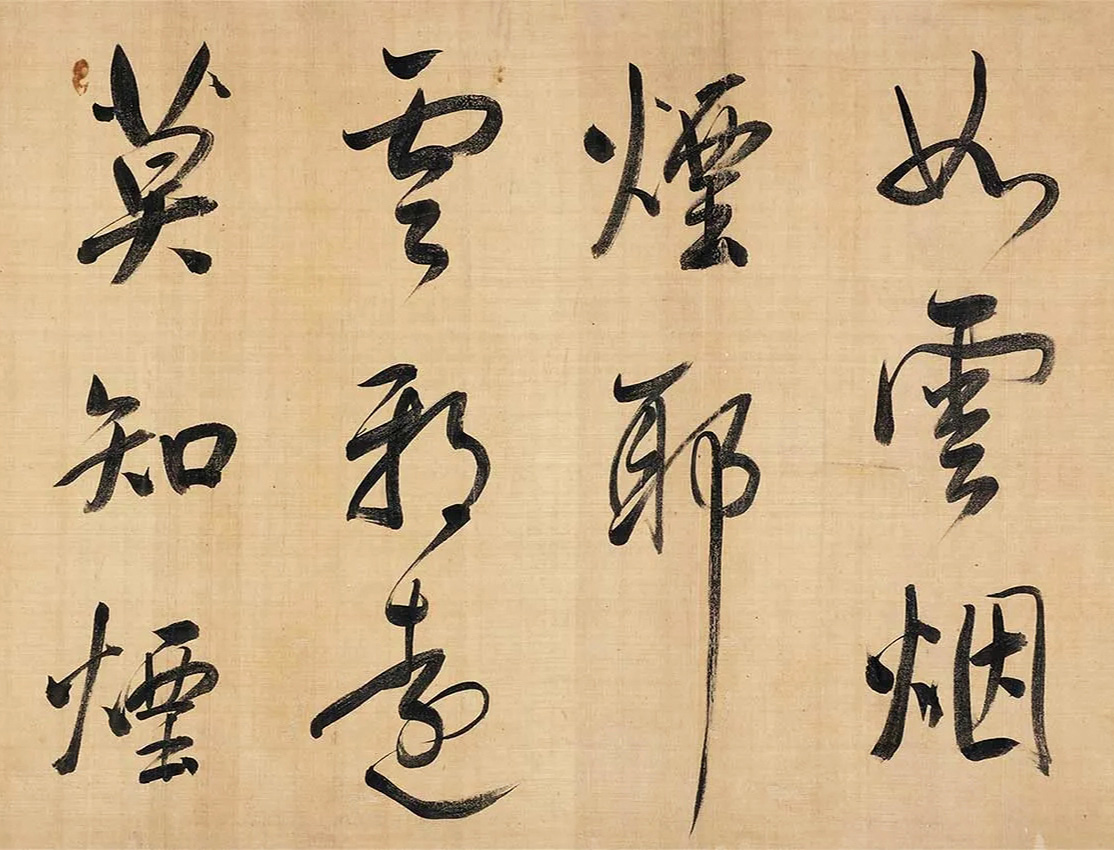 如雲烟
煙耶
雲耶遠
莫知煙